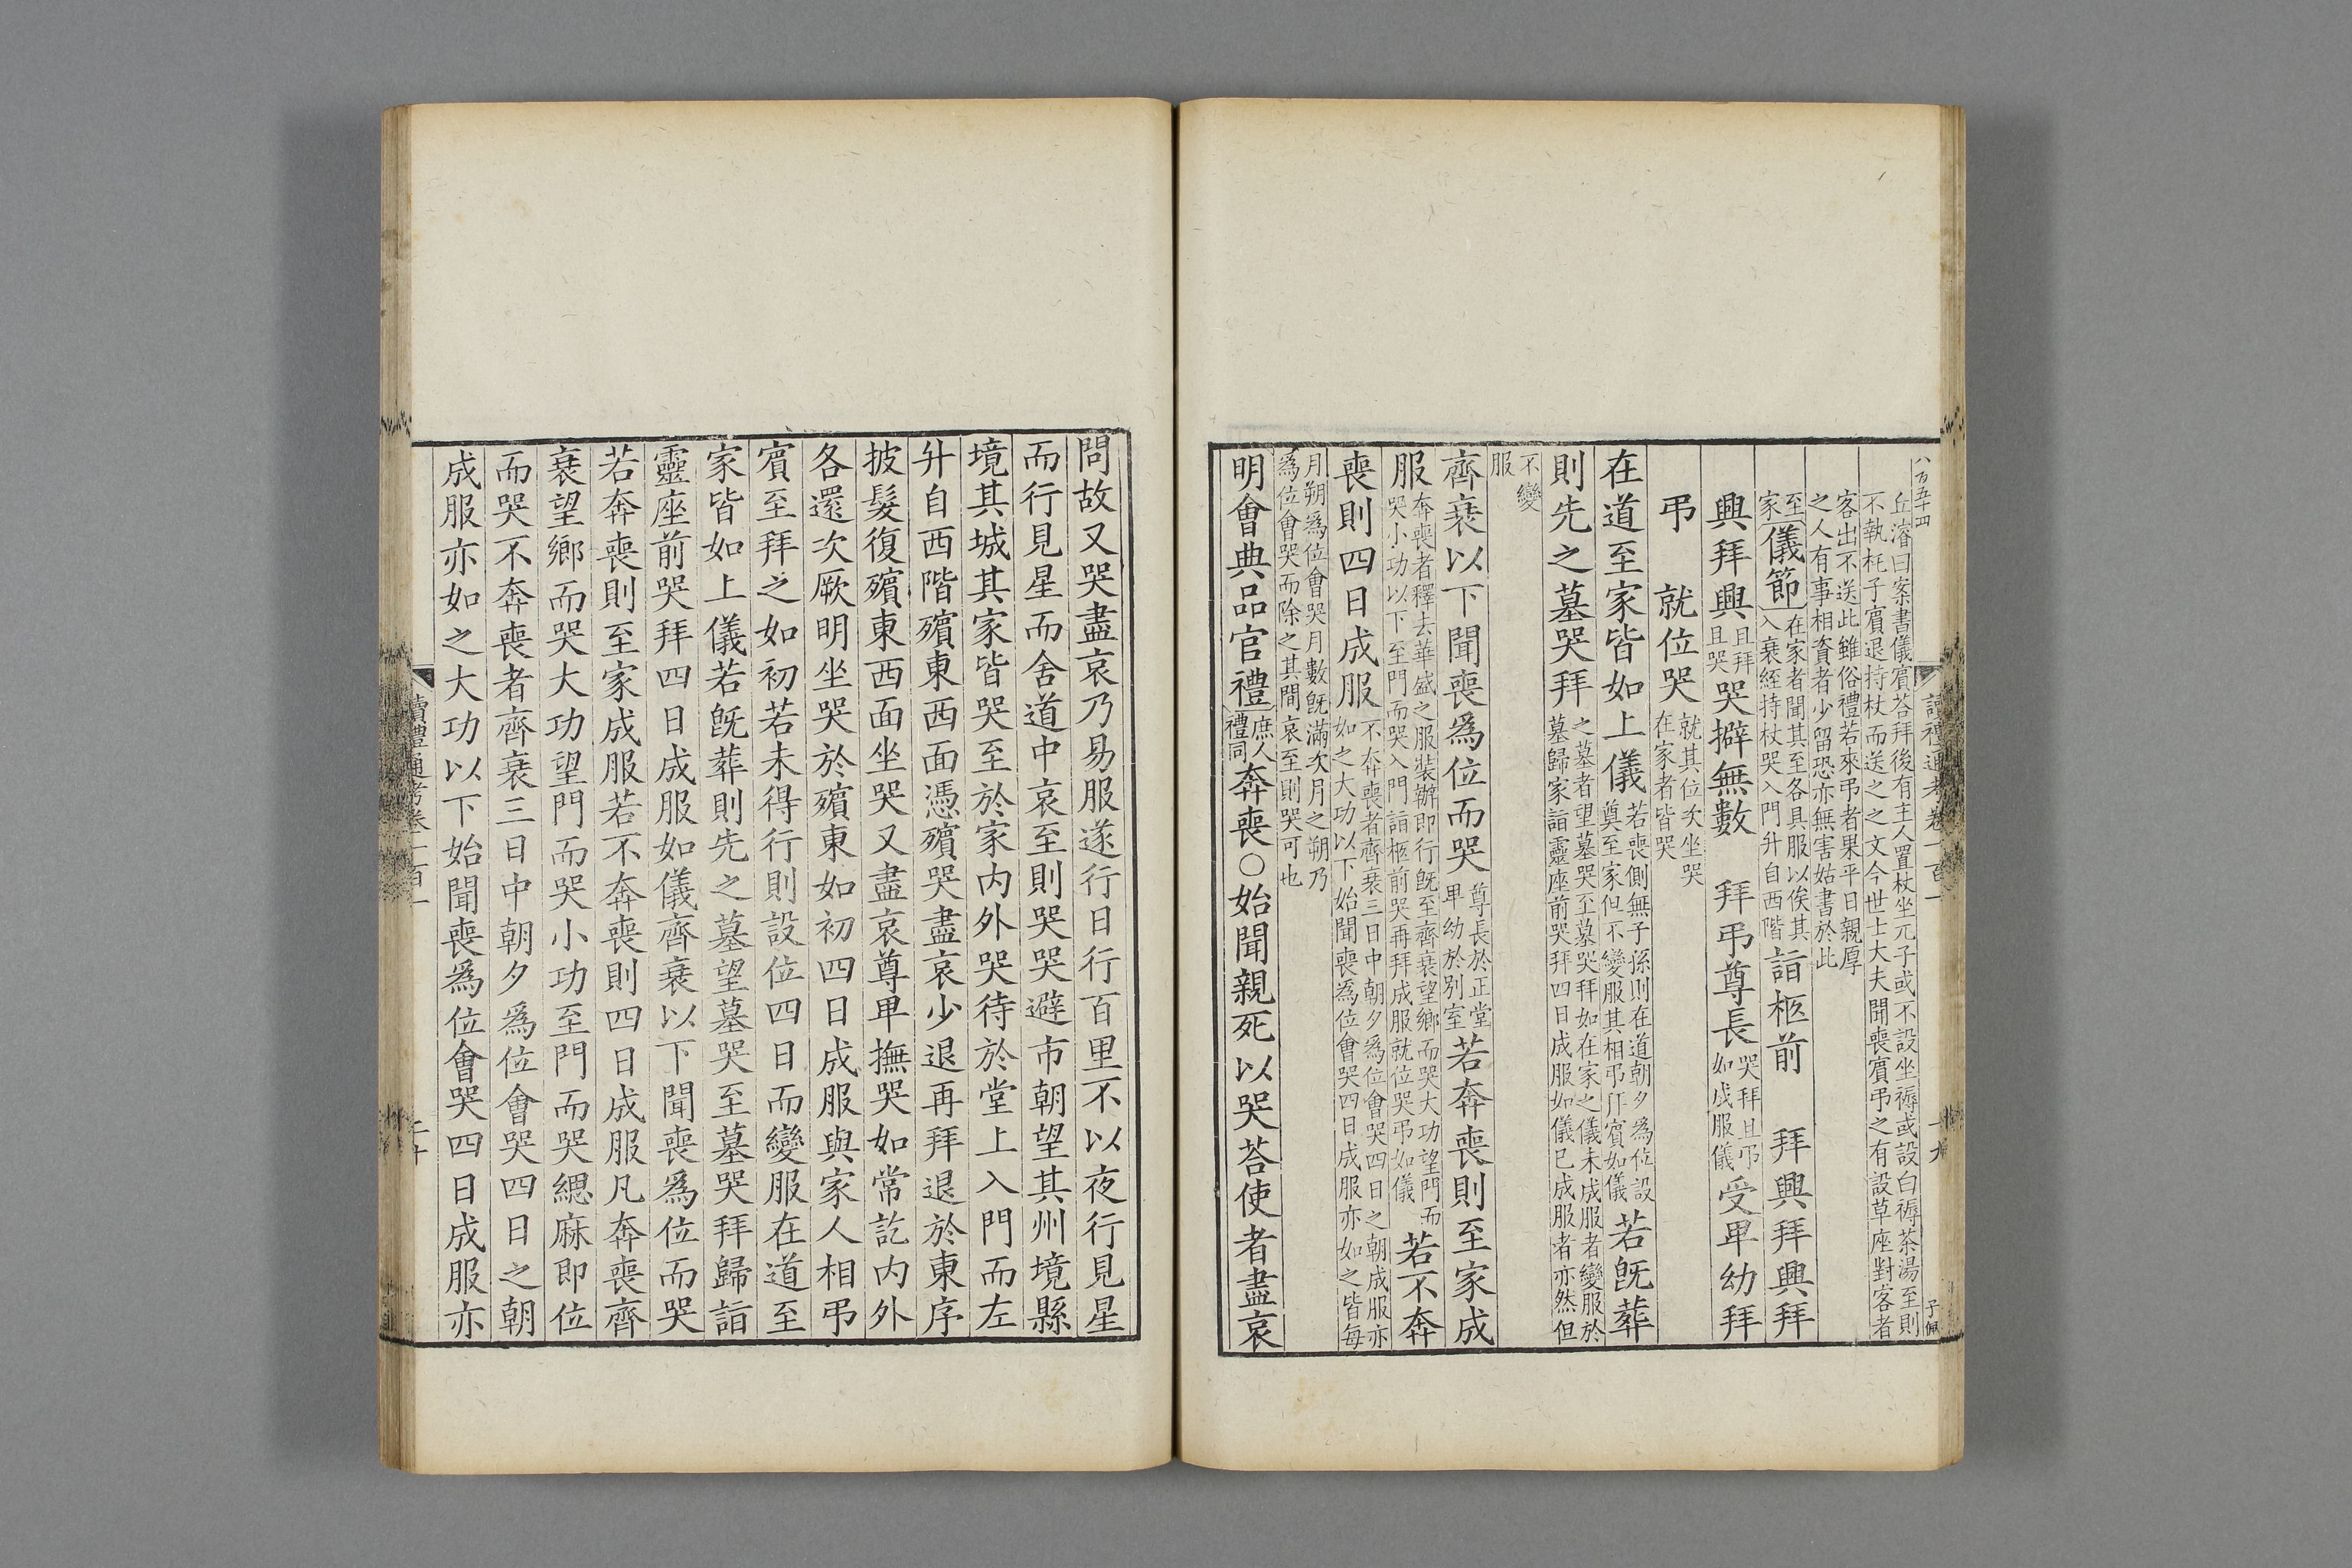 八百五十四
讀禮通考卷一百一
十九
子佩
丘濬曰案書儀賓荅拜後有主人置杖坐兀子或不設坐褥或設白褥茶湯至則
不執杖子賓退持杖而送之之文今世士大夫聞喪賓弔之有設草座對客者
客出不送此雖俗禮若來弔者果平日親厚
之人有事相資者少留恐亦無害姑書於此
至
家
儀節
在家者聞其至各具服以俟其
入衰絰持杖哭入門升自西階
詣柩前　拜興拜興拜
興拜興
且拜
且哭
哭擗無數　拜弔尊長
哭拜且弔
如成服儀
受卑幼拜
弔　就位哭
就其位次坐哭
在家者皆哭
在道至家皆如上儀
若喪側無子孫則在道朝夕為位設
奠至家但不變服其相弔拜賓如儀
若旣葬
則先之墓哭拜
之墓者望墓哭至墓哭拜如在家之儀未成服者變服於
墓歸家詣靈座前哭拜四日成服如儀已成服者亦然但
不變
服
齊衰以下聞喪爲位而哭
尊長於正堂
卑幼於別室
若奔喪則至家成
服
奔喪者釋去華盛之服裝辦即行旣至齊衰望鄉而哭大功望門而
哭小功以下至門而哭入門詣柩前哭再拜成服就位哭弔如儀
若不奔
喪則四日成服
不奔喪者齊衰三日中朝夕爲位會哭四日之朝成服亦
如之大功以下始聞喪爲位會哭四日成服亦如之皆每
月朔爲位會哭月數旣滿次月之朔乃
爲位會哭而除之其間哀至則哭可也
明會典品官禮
庶人
禮同
奔喪○始聞親死以哭荅使者盡哀
問故又哭盡哀乃易服遂行日行百里不以夜行見星
而行見星而舍道中哀至則哭哭避市朝望其州境縣
境其城其家皆哭至於家內外哭待於堂上入門而左
升自西階殯東西面憑殯哭盡哀少退再拜退於東序
披髮復殯東西面坐哭又盡哀尊卑撫哭如常訖內外
各還次厥明坐哭於殯東如初四日成服與家人相弔
賓至拜之如初若未得行則設位四日而變服在道至
家皆如上儀若旣葬則先之墓望墓哭至墓哭拜歸詣
靈座前哭拜四日成服如儀齊衰以下聞喪爲位而哭
若奔喪則至家成服若不奔喪則四日成服凡奔喪齊
衰望鄉而哭大功望門而哭小功至門而哭緦麻即位
而哭不奔喪者齊衰三日中朝夕爲位會哭四日之朝
成服亦如之大功以下始聞喪爲位會哭四日成服亦
讀禮通考卷一百一
二十